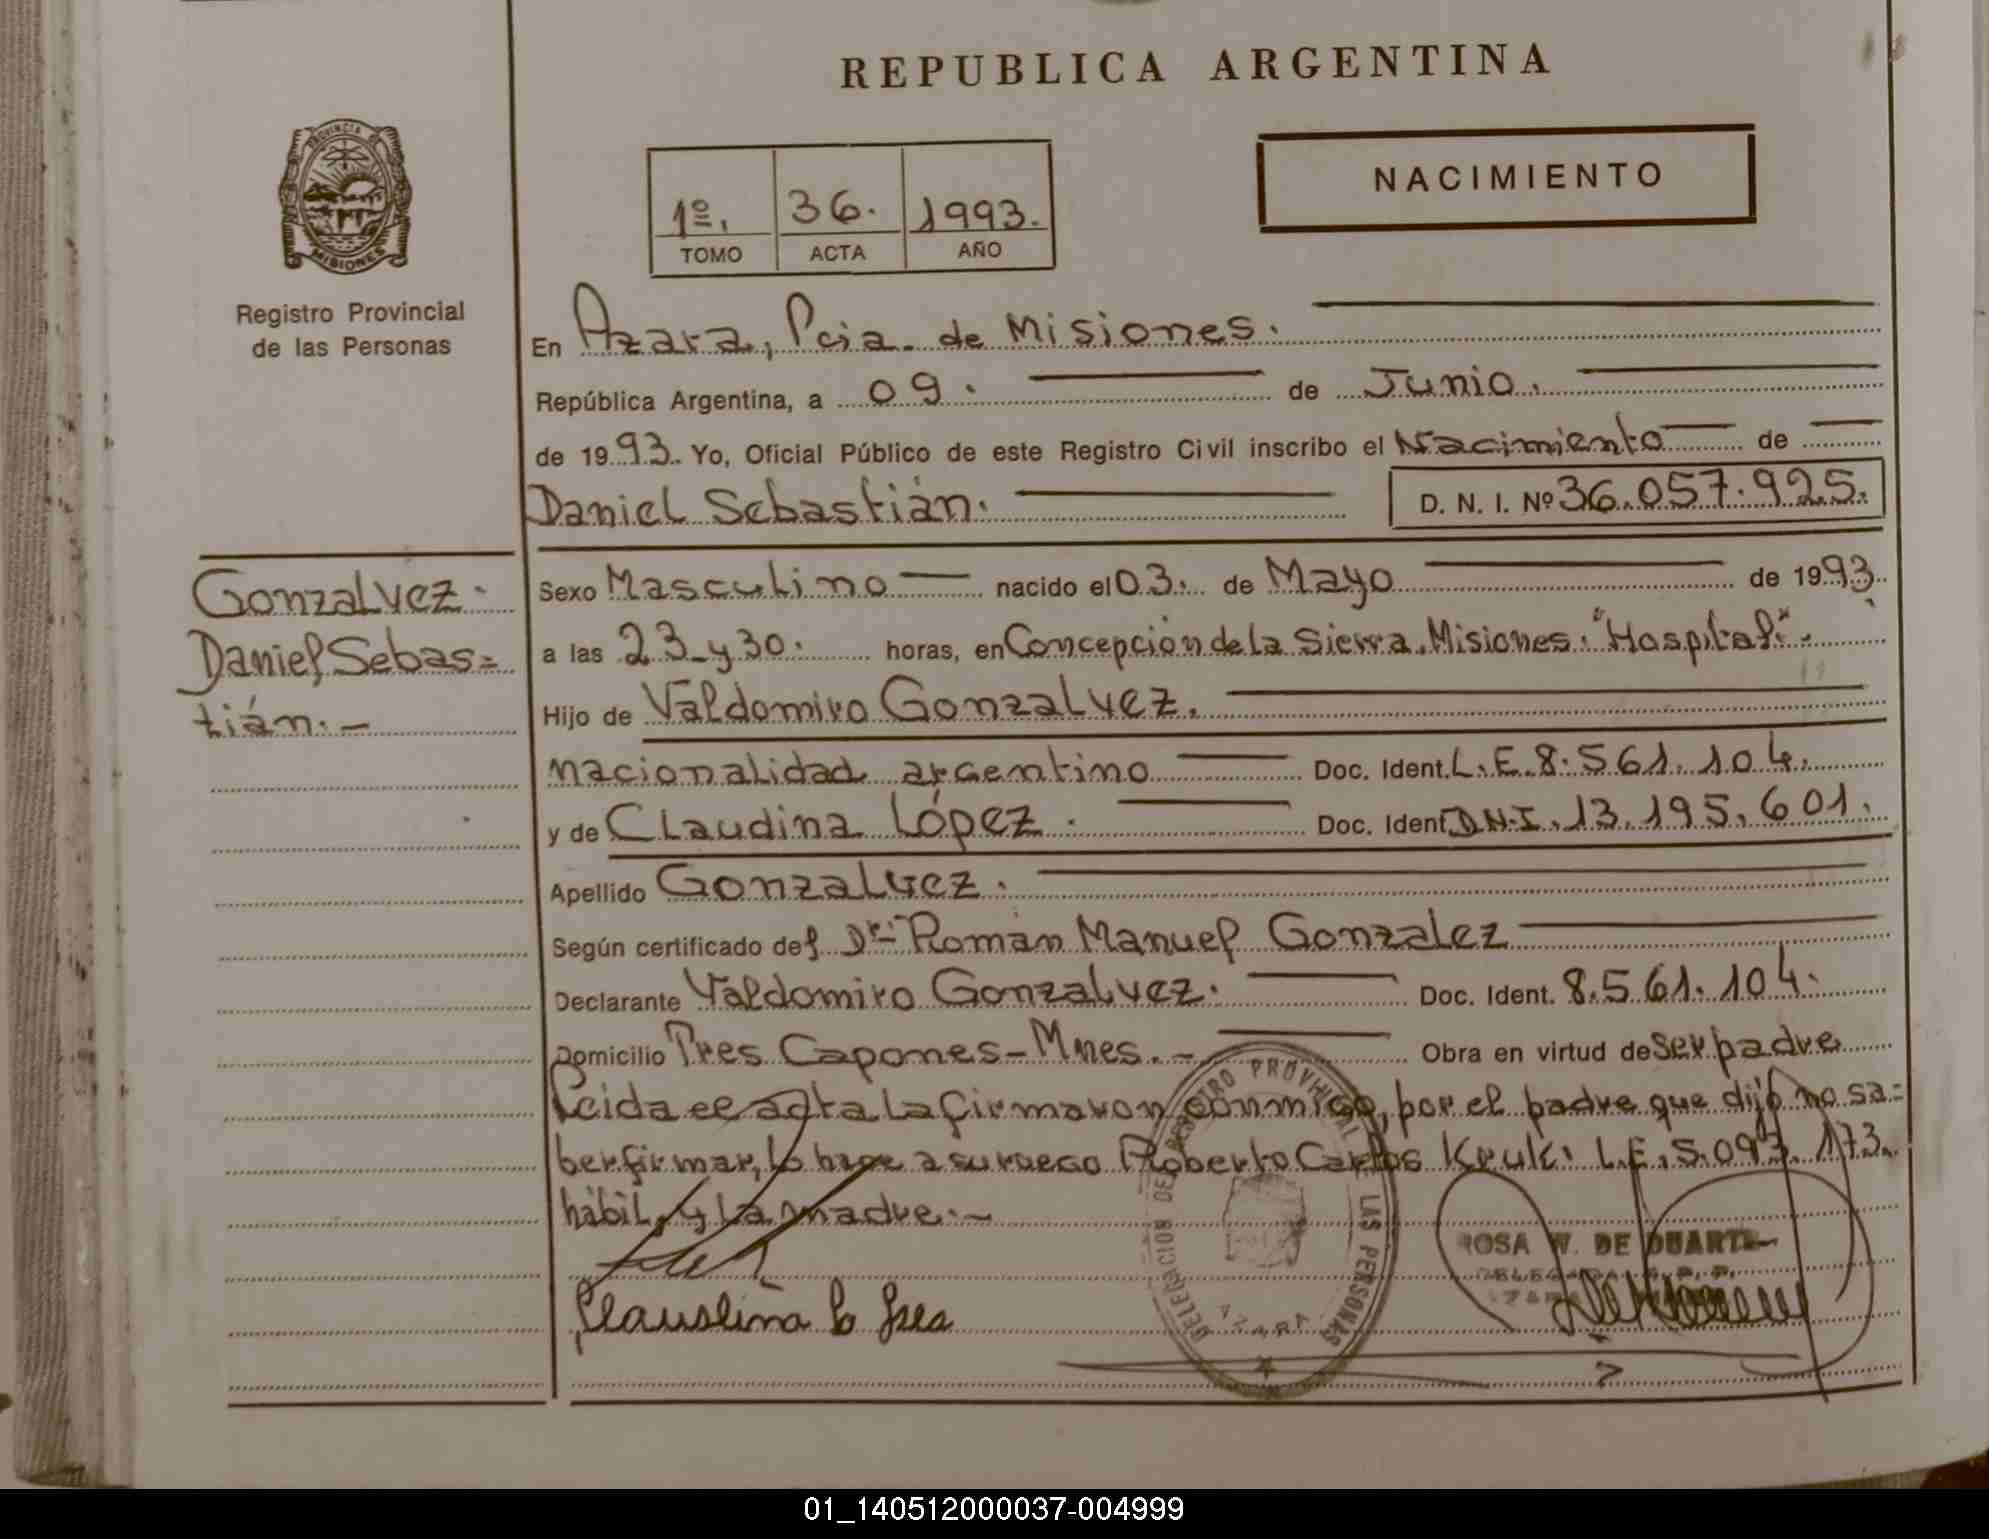 REPUBLICA ARGENTINA
NACIMIENTO
1º. 36. 1993.
TOMO ACTA AÑO
PROVINCIA
MISIONES
Registro Provincial
de las Personas
En Azara, Pcia. de Misiones.
República Argentina, a 09. de Junio.
de 1993. Yo, Oficial Público de este Registro Civil inscribo el Nacimiento de
Daniel Sebastián. D. N. I. Nº 36.057.925.
Gonzalvez.
Daniel Sebas=
tián.-
Sexo Masculino nacido el 03. de Mayo de 1993
a las 23 y 30. horas, en Concepción de la Sierra, Misiones. "Hospital".
Hijo de Valdomiro Gonzalvez.
nacionalidad argentino Doc. Ident. L.E. 8.561.104.
y de Claudina López. Doc. Ident. D.N.I. 13.195.601.
Apellido Gonzalvez.
Según certificado del Dr. Román Manuel Gonzalez
Declarante Valdomiro Gonzalvez. Doc. Ident. 8.561.104.
Domicilio Tres Capones - Mnes.- Obra en virtud de ser padre
Leida el acta la firmaron conmigo, por el padre que dijo no sa=
ber firmar, lo hace a su ruego Roberto Carlos Kruk. L.E. 5.093.173.
hábil, y la madre.-
DELEGACION DE REGISTRO PROVINCIAL DE LAS PERSONAS
AZARA
ROSA W. DE DUARTE
01_140512000037-004999